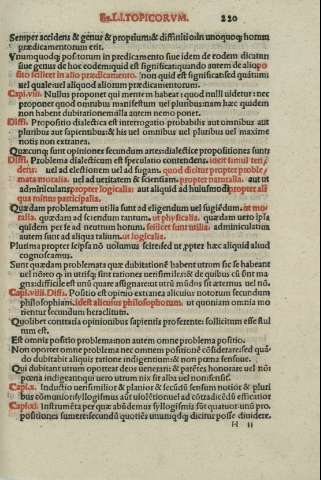 Ex.I.LI.TOPICORVM. 220
Semper accidens & genus & proprium & diffinitio in unoquoq; horum
prædicamentorum erit.
Vnumquodq; positorum in prædicamento siue idem de eodem dicatur
siue genus de hoc eodem quid est significat: quando autem de alio po
sito scilicet in alio prædicamento. non quid est significat sed quātum
uel quale uel aliquod aliorum prædicamentorum.
Capi.viii. Nullus proponet qui mentem habeat quod nulli uidetur: nec
proponet quod omnibus manifestum uel pluribus: nam hæc quidem
non habent dubitationem illa autem nemo ponet.
Diffi. Propositio dialectica est interrogatio probabilis aut omnibus aut
pluribus aut sapientibus: & his uel omnibus uel pluribus uel maxime
notis non extranea.
Quæcunq; sunt opiniones secundum artes dialecticæ propositiones sunt
Diffi. Problema dialecticum est speculatio contendens. idest simul ten/
dens. uel ad electionem uel ad fugam. quod dicitur propter proble/
mata moralia. uel ad ueritatem & scientiam. propter naturalia. aut ut
adminiculans propter logicalia: aut aliquid ad huiusmodi propter ali
qua mitus participalia.
Quædam problematum utilia sunt ad eligendum uel fugiēdum. ut mo/
ralia. quædam ad sciendum tantum. ut physicalia. quædam uero ipsa
quidem per se ad neutrum horum. scilicet sunt utilia. adminiculatiua
autem sunt ad aliqua talium. ut logicalia.
Plurima propter seipsa nō uolumus scire sed ut ꝓpter hæc aliquid aliud
cognoscamus.
Sunt quædam problemata quæ dubitationē habent utrum sic se habeant
uel nō eo ꝙ in utrisq; sint rationes uerisimiles: & de quibus cū sint ma
gna: difficile est unū quare assignare ut utrū mūdus sit æternus uel nō.
Capi.viiii. Diffi. Positio est opinio extranea alicuius notorum secundum
philosophiam. idest alicuius philosophorum. ut quoniam omnia mo
uentur secundum heraclitum.
Quolibet contraria opinionibus sapientis proferente: sollicitum esse stul
tum est.
Est omnis positio problema: non autem omne problema positio.
Non oportet omne problema nec omnem positionē cōsiderare: sed quā/
do dubitabit aliquis ratione indigentium: & non pœna sensuue.
Qui dubitant utrum oporteat deos uenerari: & parētes honorare uel nō:
pœna indigent: qui uero utrum nix sit alba uel non: sensu.
Capi.x. Inductio uerisimilior & planior & secūdū sensum notior & pluri
bus cōmunior: syllogismus aūt uiolētior: uel ad cōtradicēdū efficatior
Capi.xi. Instrumēta per quæ abūdemus syllogismis sūt quatuor: unū pro.
positiones sumere: secundū quotiēs unūquodq; dicitur posse diuidere.
H ii